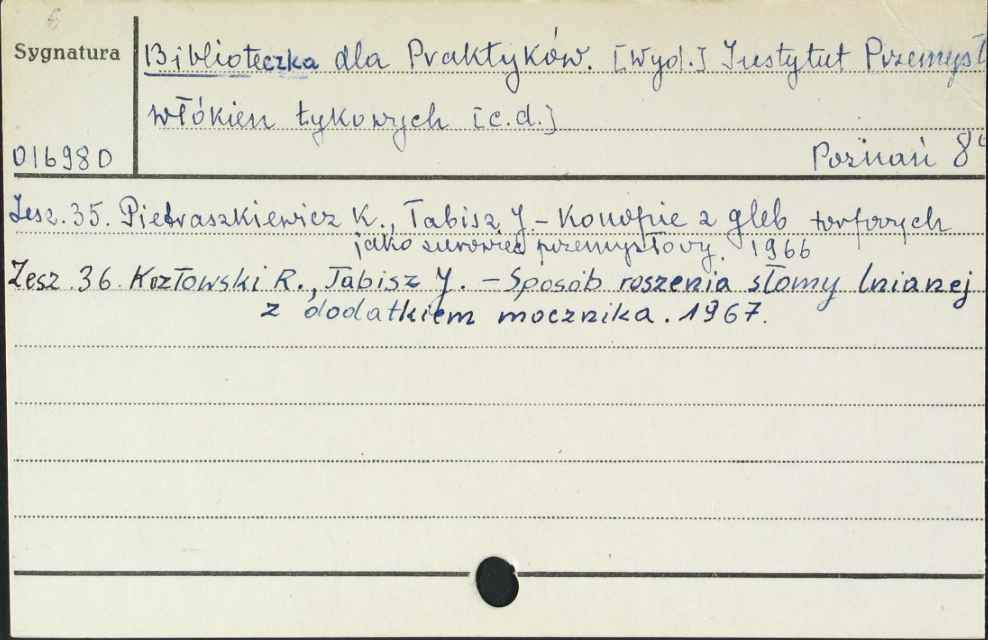 Sygnatura
Biblioteczka dla Praktyków. [Wyd.] Instytut Przemysł
włókien łykowych [c.d.]
01698D
Poznań 8°
Zesz. 35. Pietraszkiewicz K., Tabisz J. - Konopie z gleb torfowych
jako surowiec przemysłowy. 1966
Zesz. 36. Kozłowski R., Tabisz J. - Sposób roszenia słomy lnianej
z dodatkiem mocznika. 1967.